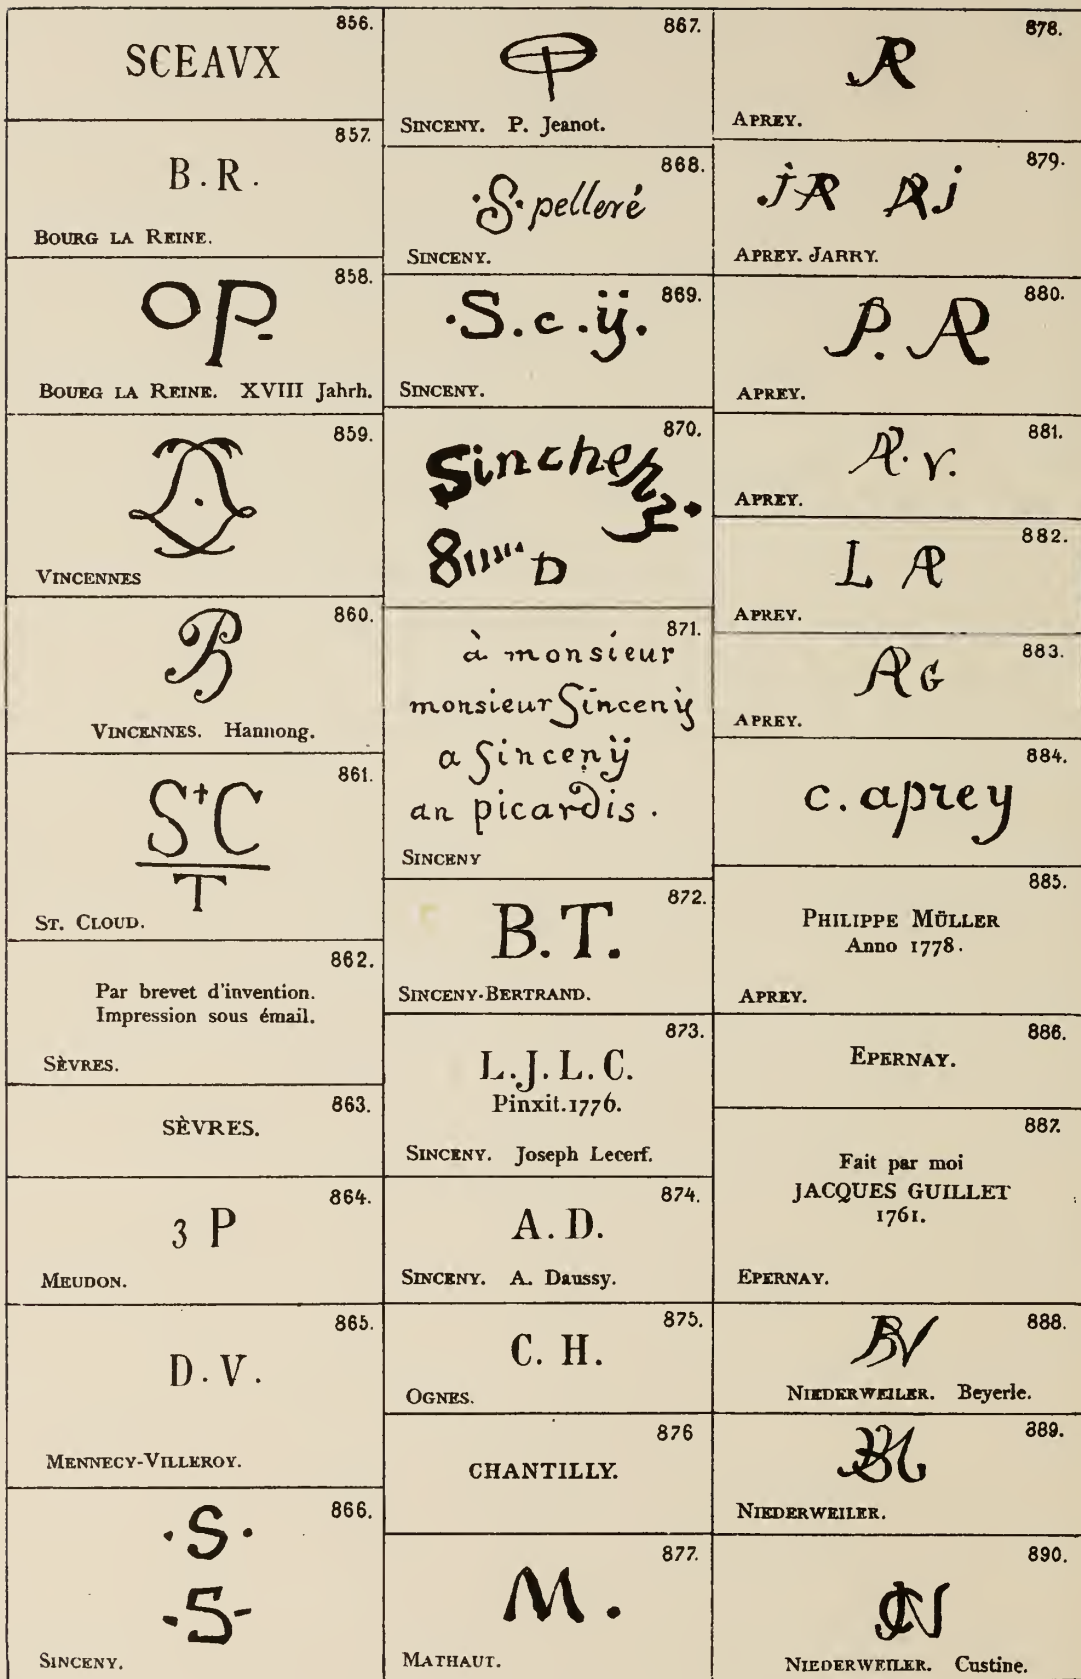 856.
SCEAVX
857.
B.R.
BOURG LA REINE.
858.
OP.
BOUEG LA REINE. XVIII Jahrh.
859.
VINCENNES
860.
VINCENNES. Hannong.
861.
S†C
T
ST. CLOUD.
862.
Par brevet d'invention.
Impression sous émail.
SÈVRES.
863.
SÈVRES.
864.
3 P
MEUDON.
865.
D.V.
MENNECY-VILLEROY.
866.
·S·
·S-
SINCENY.
867.
SINCENY. P. Jeanot.
868.
·S·pelleré
SINCENY.
869.
·S.c.ÿ.
SINCENY.
870.
Sincheny
8 D
871.
à monsieur
monsieur Sincenÿ
a Sincenÿ
an picardis.
SINCENY
872.
B.T.
SINCENY-BERTRAND.
873.
L.J.L.C.
Pinxit.1776.
SINCENY. Joseph Lecerf.
874.
A.D.
SINCENY. A. Daussy.
875.
C. H.
OGNES.
876
CHANTILLY.
877.
M.
MATHAUT.
878.
AR
APREY.
879.
jAR ARj
APREY. JARRY.
880.
P. AR
APREY.
881.
AR. v.
APREY.
882.
L AP
APREY.
883.
AR G
APREY.
884.
c. aprey
885.
PHILIPPE MÜLLER
Anno 1778.
APREY.
886.
EPERNAY.
887.
Fait par moi
JACQUES GUILLET
1761.
EPERNAY.
888.
BN
NIEDERWEILER. Beyerle.
889.
NIEDERWEILER.
890.
CN
NIEDERWEILER. Custine.